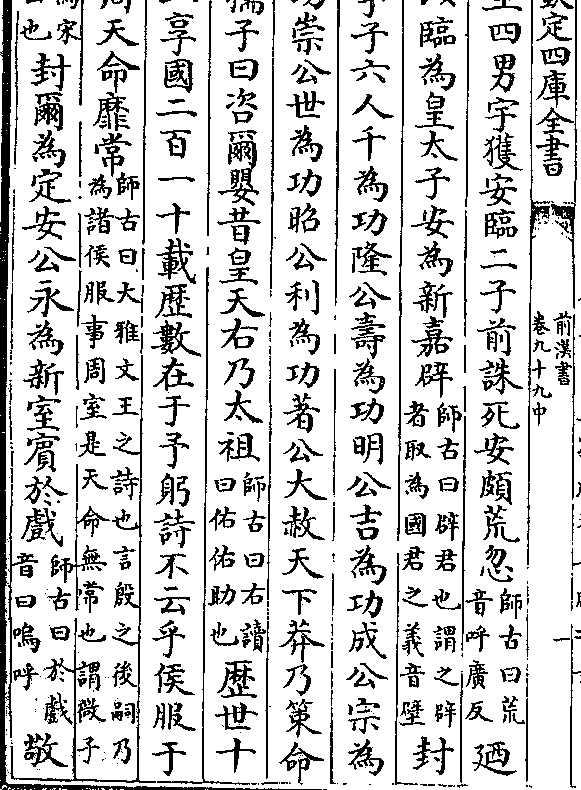 欽定四庫全書
前漢書
卷九十九中
一
生四男宇獲安臨二子前誅死安頗荒忽
師古曰荒
音呼廣反
廼
以臨為皇太子安為新嘉辟
師古曰辟君也謂之辟
者取為國君之義音壁
封
宇子六人千為功隆公壽為功明公吉為功成公宗為
功崇公世為功昭公利為功著公大赦天下莽乃策命
孺子曰咨爾嬰昔皇天右乃太祖
師古曰右讀
曰佑佑助也
歴世十
享國二百一十載歴數在于予躬詩不云乎侯服于
周天命靡常
師古曰大雅文王之詩也言殷之後嗣乃
為諸侯服事周室是天命無常也謂微子
為宋
也
封爾為定安公永為新室賓於戲
師古曰於戲
音曰嗚呼
敬